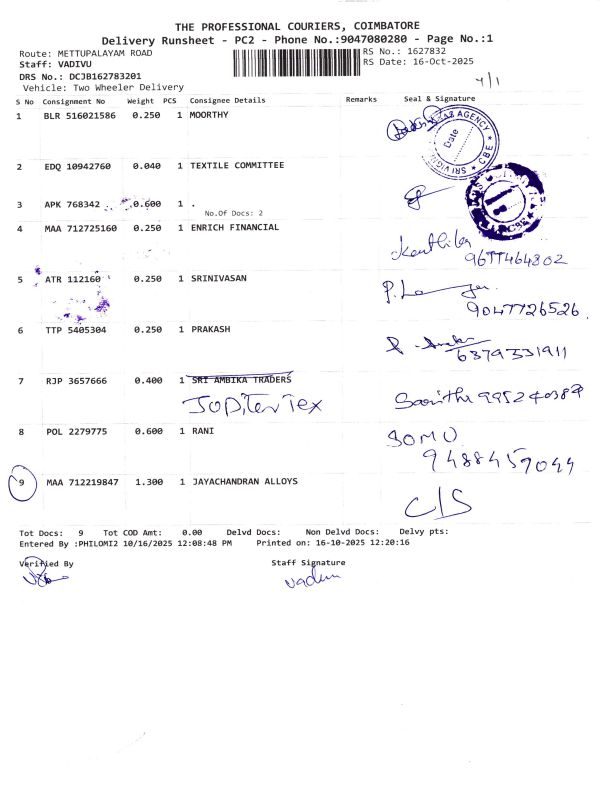 THE PROFESSIONAL COURIERS, COIMBATORE
Delivery Runsheet - PC2 - Phone No.:9047080280 - Page No.:1
Route: METTUPALAYAM ROAD
RS No.: 1627832
Staff: VADIVU
RS Date: 16-Oct-2025
DRS No.: DCJB162783201
Vehicle: Two Wheeler Delivery
4/1
S No Consignment No Weight PCS Consignee Details Remarks Seal & Signature
1 BLR 516021586 0.250 1 MOORTHY
AGENCY
Date
CBE
2 EDQ 10942760 0.040 1 TEXTILE COMMITTEE
3 APK 768342 0.600 1 .
No.Of Docs: 2
4 MAA 712725160 0.250 1 ENRICH FINANCIAL
9677464802
5 ATR 112160 0.250 1 SRINIVASAN
9047726526
6 TTP 5405304 0.250 1 PRAKASH
6379331911
7 RJP 3657666 0.400 1 SRI AMBIKA TRADERS
JUPiter Tex
8 POL 2279775 0.600 1 RANI
SOMU
9488459044
9 MAA 712219847 1.300 1 JAYACHANDRAN ALLOYS
C/S
Tot Docs: 9 Tot COD Amt: 0.00 Delvd Docs: Non Delvd Docs: Delvy pts:
Entered By :PHILOMI2 10/16/2025 12:08:48 PM Printed on: 16-10-2025 12:20:16
Verified By
Staff Signature